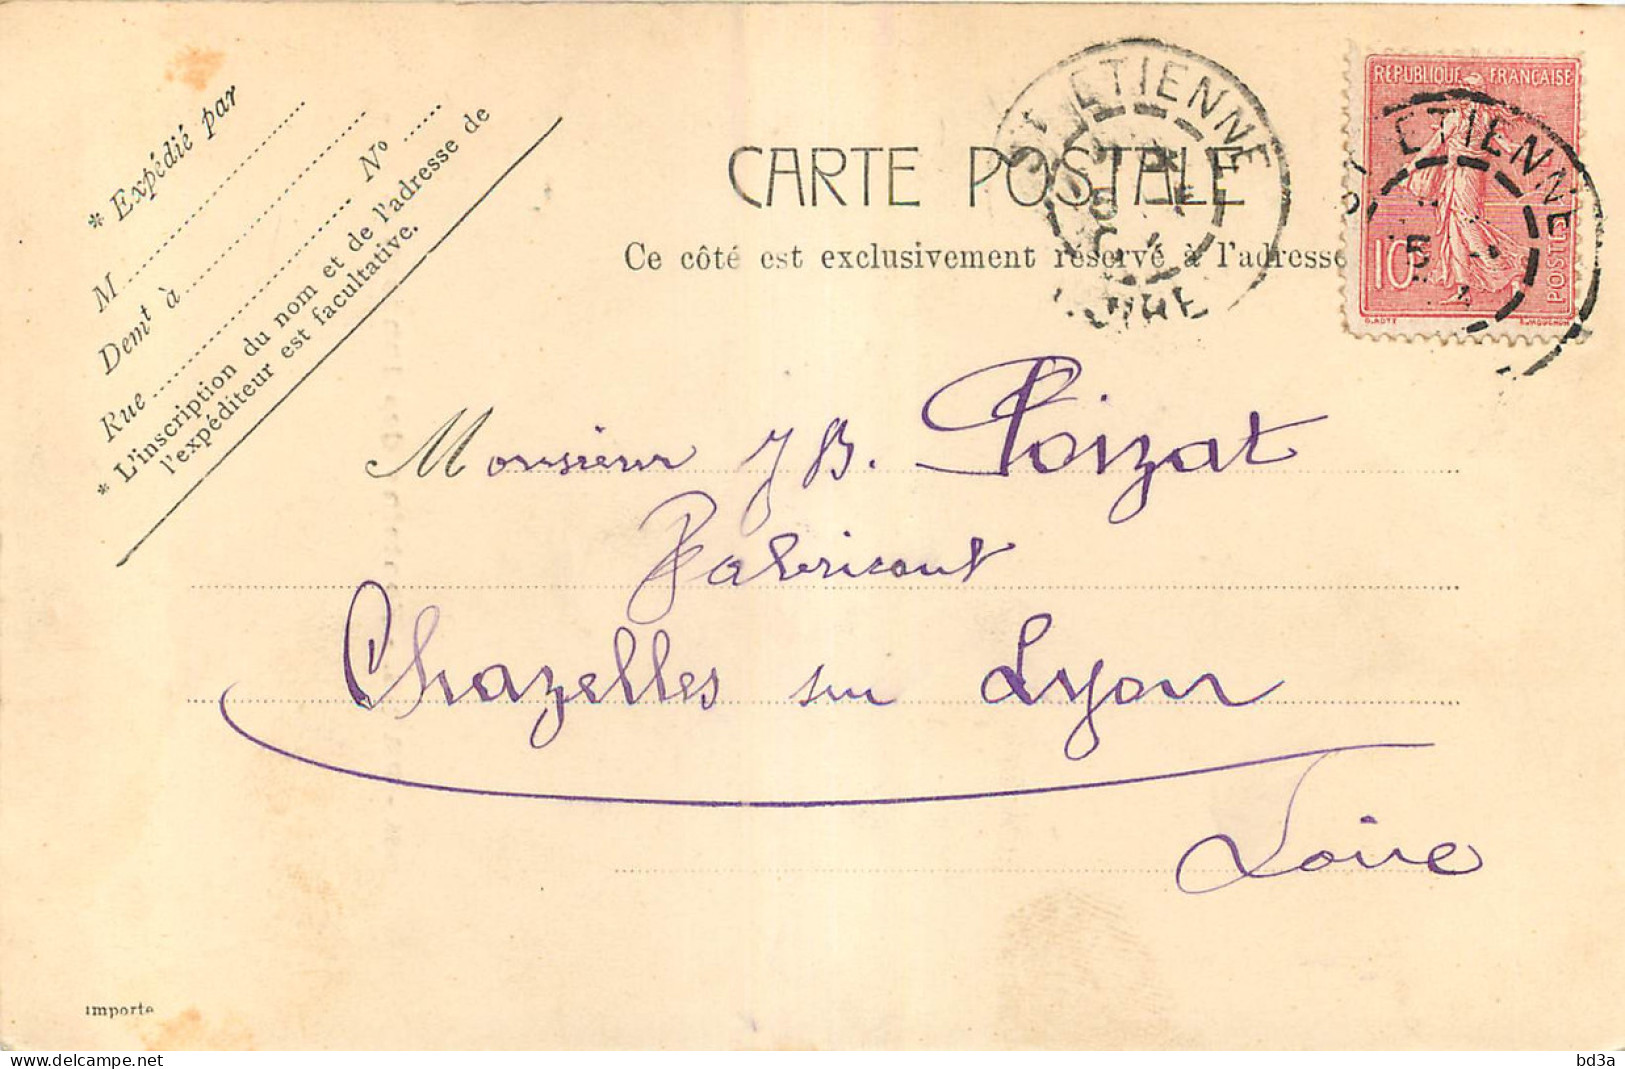 * Expédié par
M
Demt à
Rue
No
* L'inscription du nom et de l'adresse de
l'expéditeur est facultative.
CARTE POSTALE
Ce côté est exclusivement réservé à l'adresse
ST ETIENNE
LOIRE
REPUBLIQUE FRANÇAISE
10
POSTES
ETIENNE
5
Monsieur JB. Poizat
Fabricant
Chazelles sur Lyon
Loire
Importé
bd3a